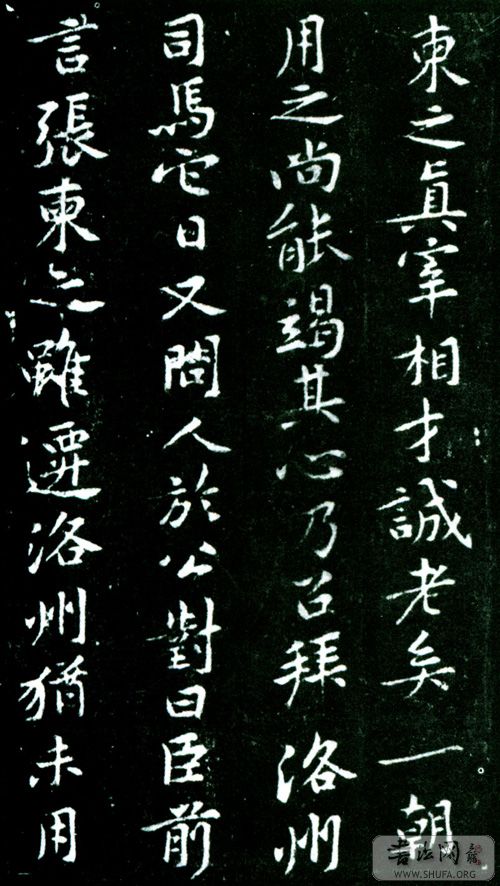 柬之真宰相才誠老矣一朝
用之尚能竭其心乃召拜洛州
司馬它日又問人於公對曰臣前
言張柬之雖遷洛州猶未用
书法网
WWW.SHUFA.ORG